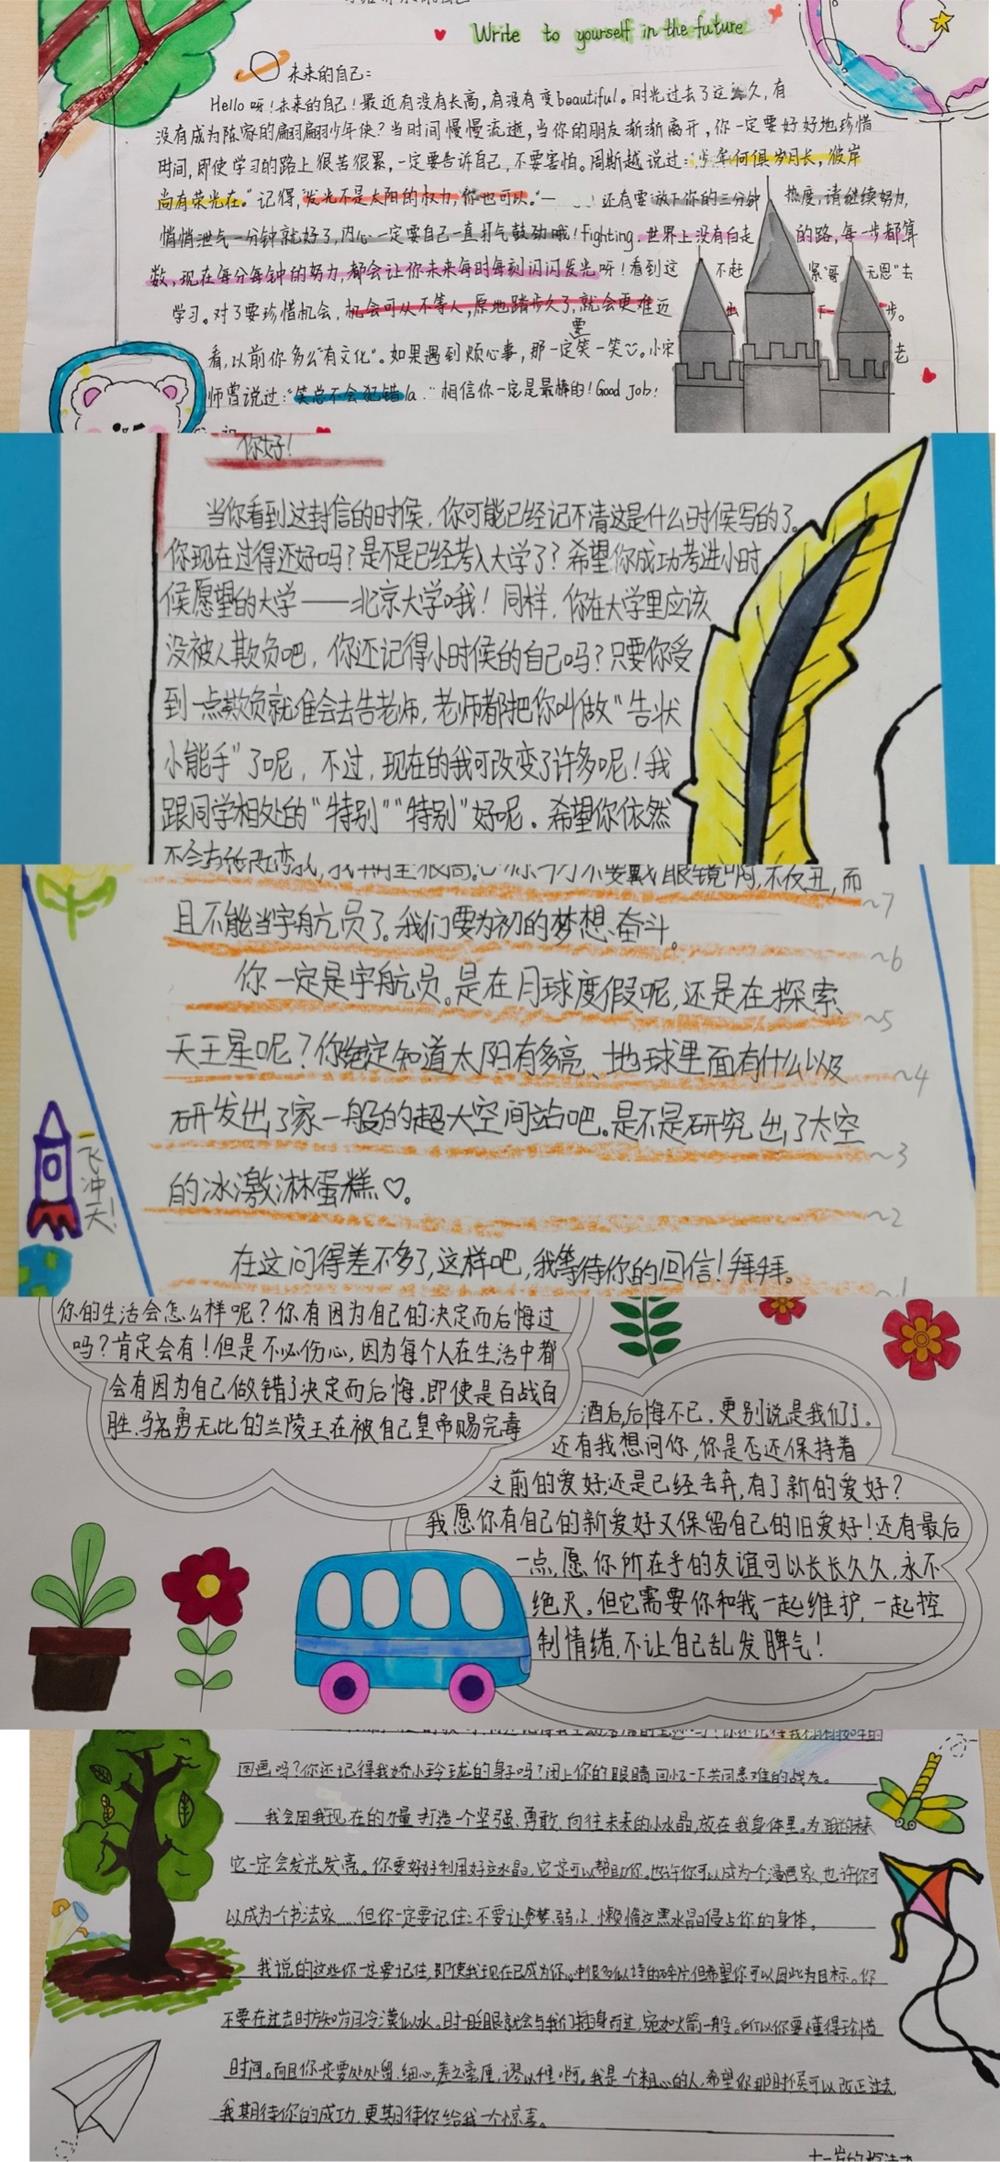 Write to yourself in the future
未来的自己：
Hello 呀！未来的自己！最近有没有长高，有没有变beautiful。时光过去了这么久，有
没有成为陈家的翩翩少年侠？当时间慢慢流逝，当你的朋友渐渐离开，你一定要好好地珍惜
时间，即使学习的路上很苦很累，一定要告诉自己，不要害怕。周斯越说过：“少年何惧岁月长，彼岸
尚有荣光在。”记得，“发光不是太阳的权力，你也可以。”— 还有要放下你的三分钟 热度，请继续努力，
悄悄泄气一分钟就好了，内心一定要自己一直打气鼓劲哦！fighting，世界上没有白走 的路，每一步都算
数，现在每分每钟的努力，都会让你未来每时每刻闪闪发光呀！看到这 不赶 紧“哥 无恩”去
学习。对了要珍惜机会，机会可从不等人，原地踏步久了，就会更难迈 出 下一 步。
要
看，以前你多么“有文化”。如果遇到烦心事，那一定笑一笑。小宋 老
师曾说过：“笑总不会犯错la.”相信你一定是最棒的！Good Job！
你好！
当你看到这封信的时候，你可能已经记不清这是什么时候写的了。
你现在过得还好吗？是不是已经考入大学了？希望你成功考进小时
候愿望的大学——北京大学哦！同样，你在大学里应该
没被人欺负吧，你还记得小时候的自己吗？只要你受
到一点欺负就准会去告老师，老师都把你叫做“告状
小能手”了呢，不过，现在的我可改变了许多呢！我
跟同学相处的“特别”“特别”好呢。希望你依然
不会
不仅丑，而
~7
且不能当宇航员了。我们要为初的梦想奋斗。
~6
你一定是宇航员。是在月球度假呢，还是在探索
~5
天王星呢？你绝定知道太阳有多亮、地球里面有什么以及
~4
研发出了家一般的超大空间站吧。是不是研究出了太空
~3
的冰激淋蛋糕♡。
~2
在这问得差不多了，这样吧，我等待你的回信！拜拜。
~1
一飞冲天！
你的生活会怎么样呢？你有因为自己的决定而后悔过
吗？肯定会有！但是不必伤心，因为每个人在生活中都
会有因为自己做错了决定而后悔。即使是百战百
胜，骁勇无比的兰陵王在被自己皇帝赐完毒
酒后后悔不已，更别说是我们了。
还有我想问你，你是否还保持着
之前的爱好还是已经丢弃，有了新的爱好？
我愿你有自己的新爱好又保留自己的旧爱好！还有最后
一点，愿你所在乎的友谊可以长长久久，永不
绝灭。但它需要你和我一起维护，一起控
制情绪，不让自己乱发脾气！
国画吗？你还记得我娇小玲珑的身子吗？闭上你的眼睛回忆一下共同患难的战友。
我会用我现在的力量打造一个坚强、勇敢、向往未来的小水晶，放在我身体里。为
它一定会发光发亮。你要好好利用好这水晶，它定可以帮助你。也许你可以成为一个漫画家，也许你可
以成为一个书法家……但你一定要记住：不要让贪婪、弱小、懒惰这黑水晶侵占你的身体。
我说的这些你一定要记住，即使我现在已成为你心中很多似诗的碎片，但希望你可以因此为目标。你
不要在过去时方知岁月冷漠似水。时一眨眼就会与我们插身而过，宛如火箭一般。所以你要懂得珍惜
时间。而且你一定要处处留、细心，差之毫厘，谬以千里啊。我是个粗心的人，希望你那时候可以改正过去
我期待你的成功，更期待你给我一个惊喜。
十一岁的